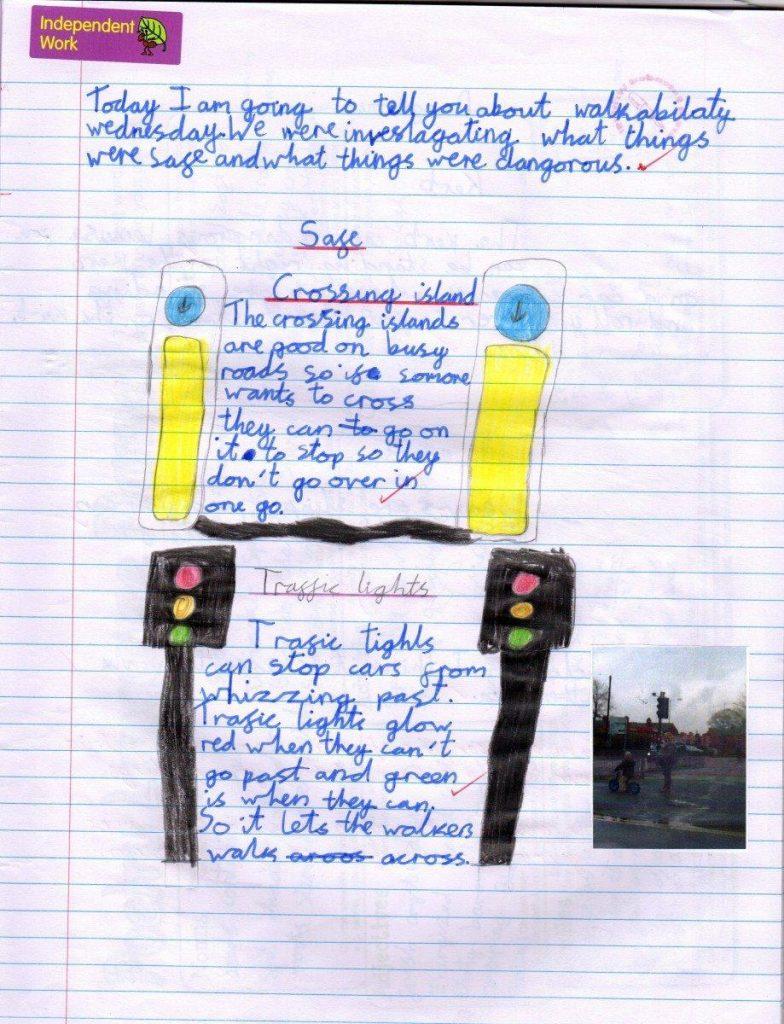 Independent
Work
Today I am going to tell you about walkabilaty
wednesday. We were investagating what things
were safe and what things were dangorous.
Safe
Crossing island
The crossing islands
are good on busy
roads so if somone
wants to cross
they can to go on
it to stop so they
don't go over in
one go.
Traffic lights
Trafic tighls
can stop cars from
whizzing past.
Trafic lights glow
red when they can't
go past and green
is when they can.
So it lets the walkers
walk aroos across.